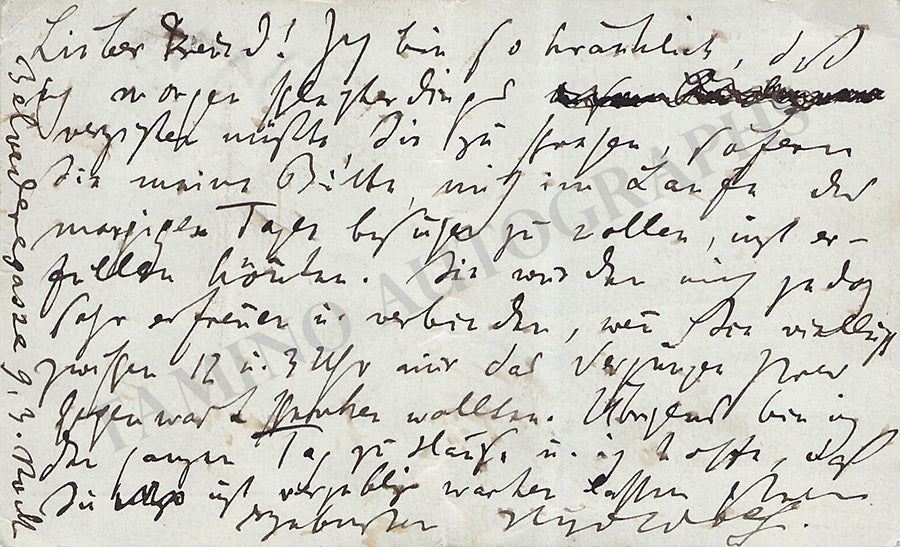 Lieber Freund! Ich bin so kränklich, daß
ich morgen schlechterdings
verzichten müßte Sie zu sehen, sofern
Sie meine Bitte, mich im Laufe des
morgigen Tages besuchen zu wollen, nicht er-
füllen könnten. Sie würden mich jedoch
sehr erfreuen u. verbinden, wen̄ Sie vielleicht
zwischen 12 u. 3 Uhr mir das Vergnügen Ihrer
Gegenwart schenken wollten. Übrigens bin ich
den ganzen Tag zu Hause u. ich hoffe, daß
Sie nicht vergeblich warten lassen Ihren
ergebensten
Belvederegasse 9, 3. Stock
TAMINO AUTOGRAPHS